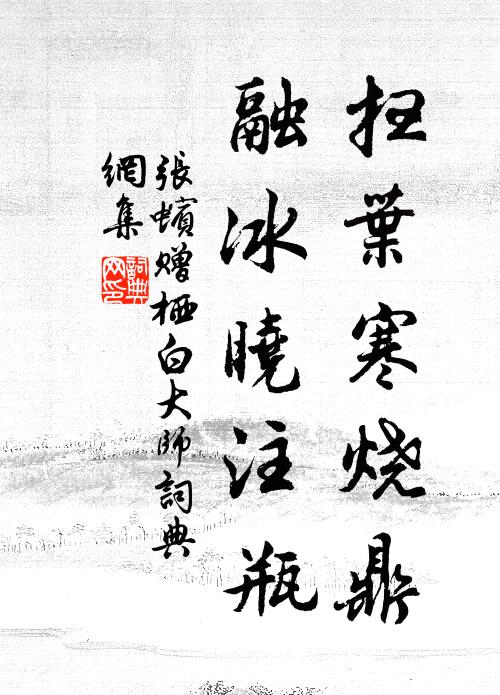 扫葉寒烧鼎
融冰曉注瓶
張蠙贈栖白大师詞典
網集
詞典网印